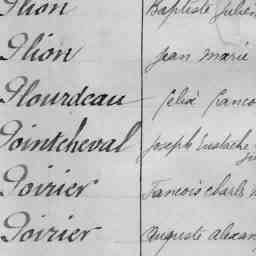 Plion Baptiste Julien
Plion Jean Marie
Plourdeau Félix Franco
Pointcheval Joseph Eustache
Poirier Francois Charle
Poirier Auguste Alexan